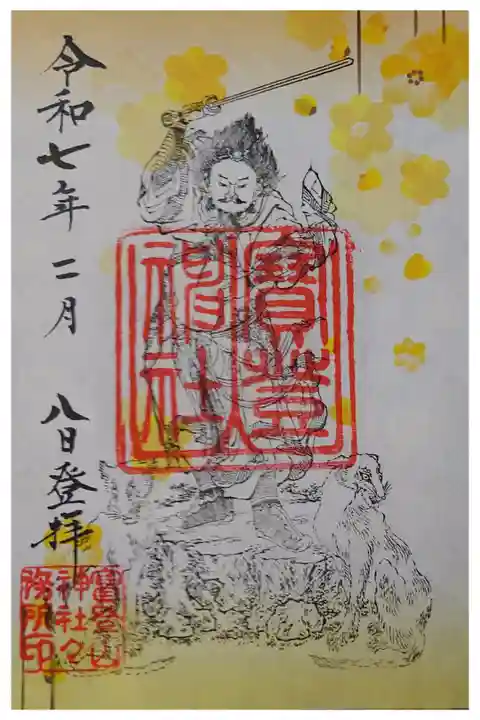 令和七年二月八日登拝
寳登山
神社
寳登山
神社々
務所印